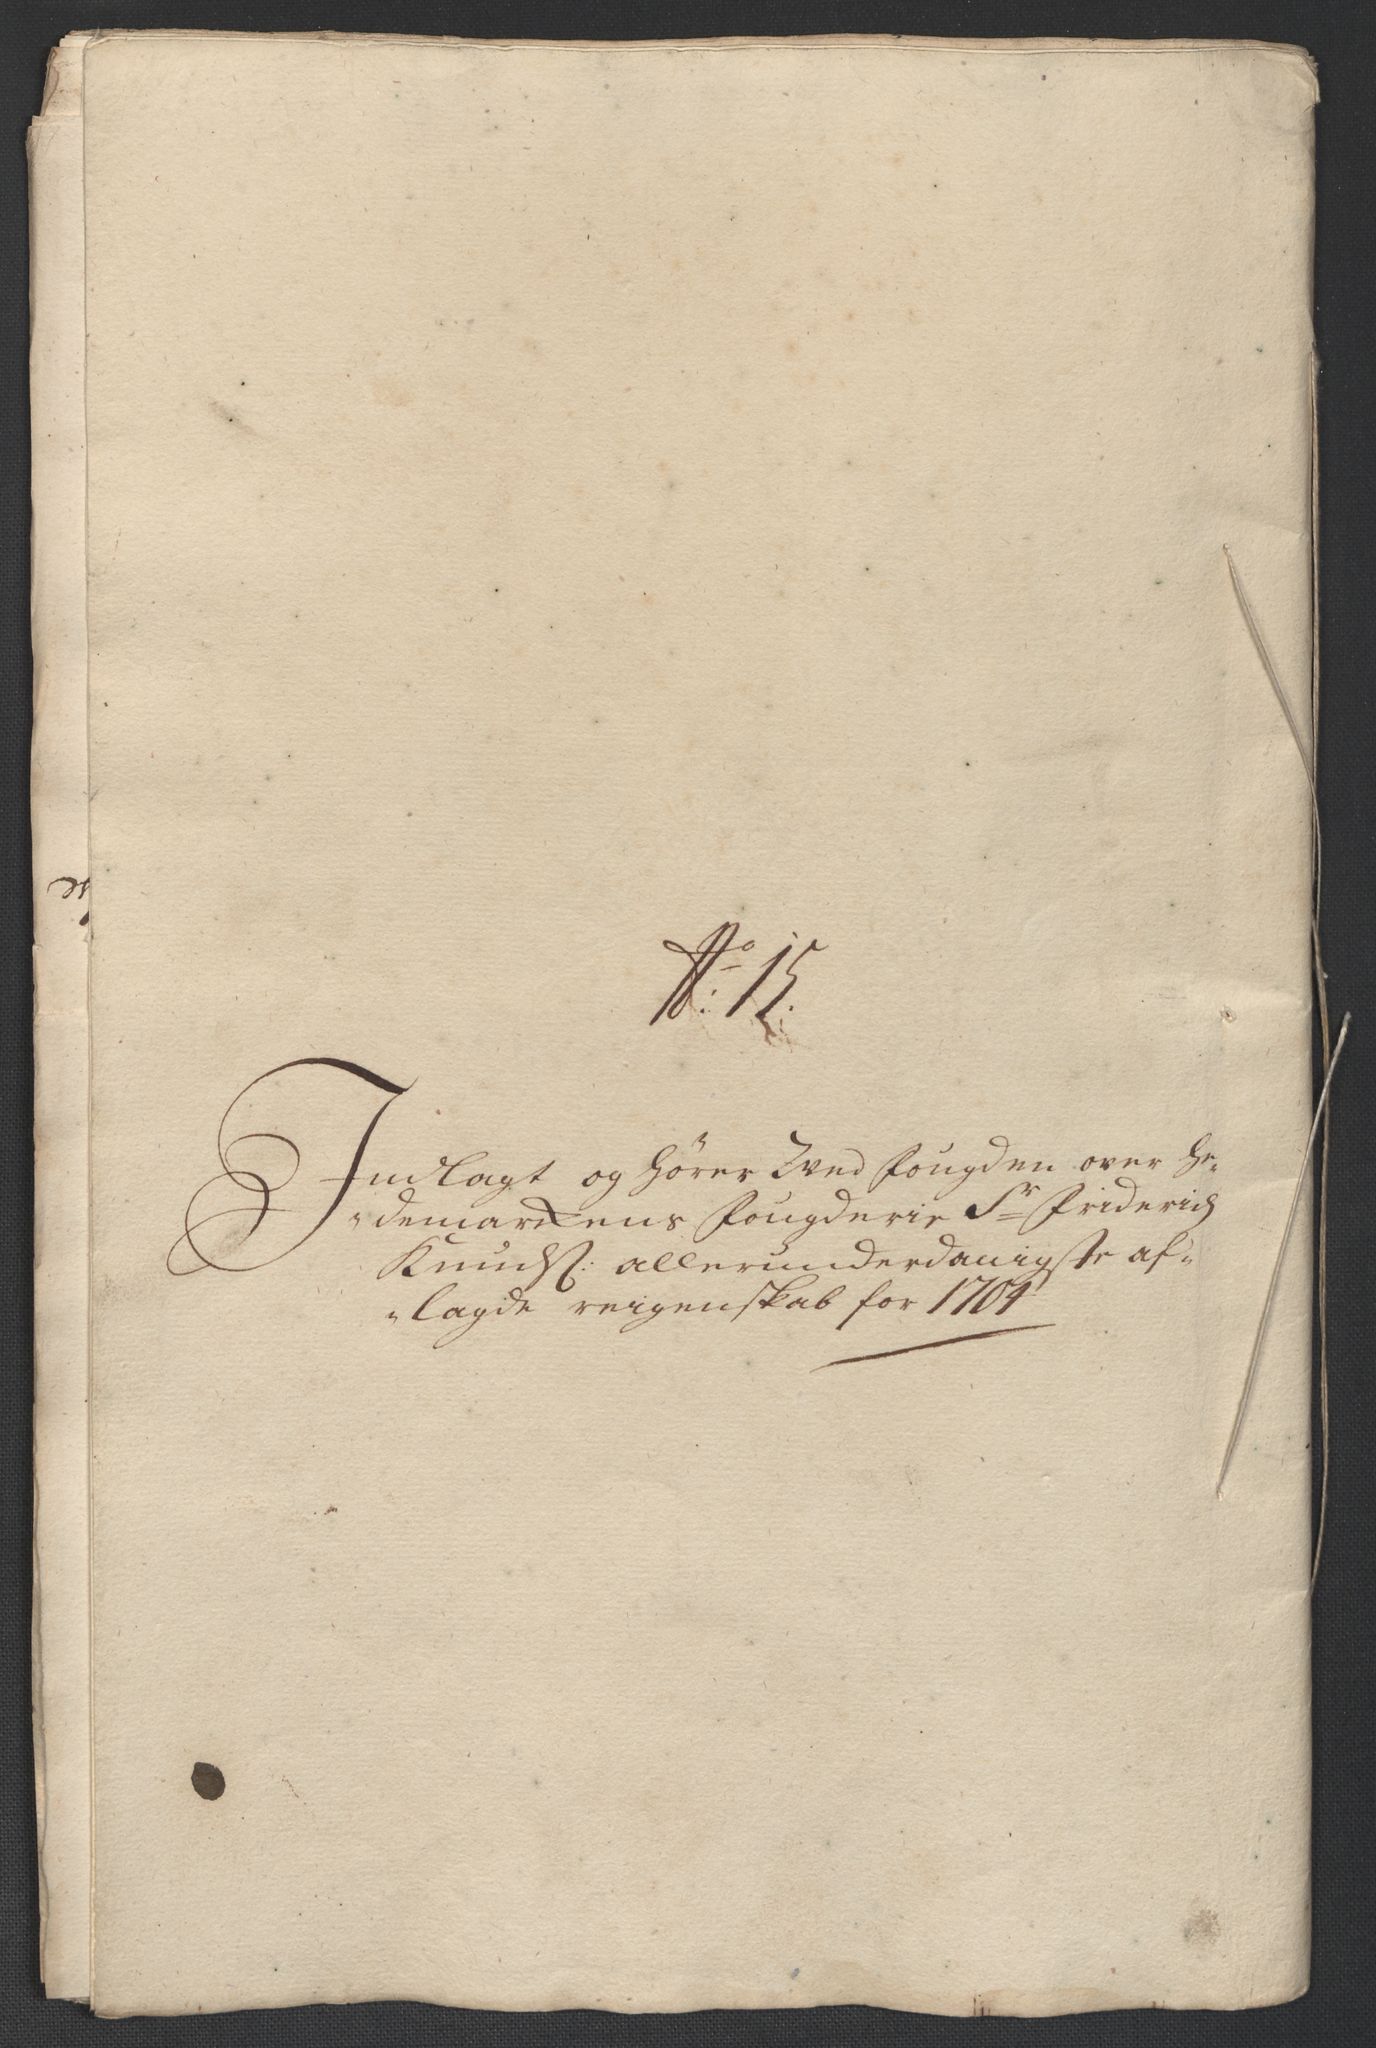 No: 15.
Indlagt og hører Ved fougden over He-
"demarckens fougderie Sr Friderich
Knuds: allerunderdanigste af-
"lagde reigenskab for 1704